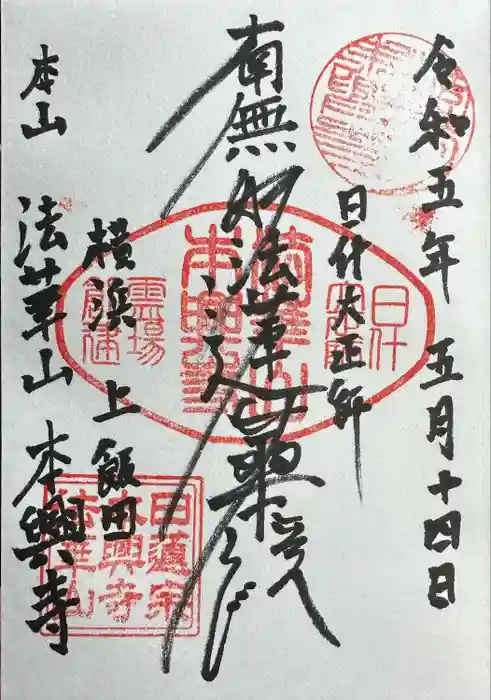 令和五年五月十四日
日什大正師
南無妙法蓮華経
横浜上飯田
本山 法華山 本興寺
日什
霊場
日蓮宗
本興寺
法華山